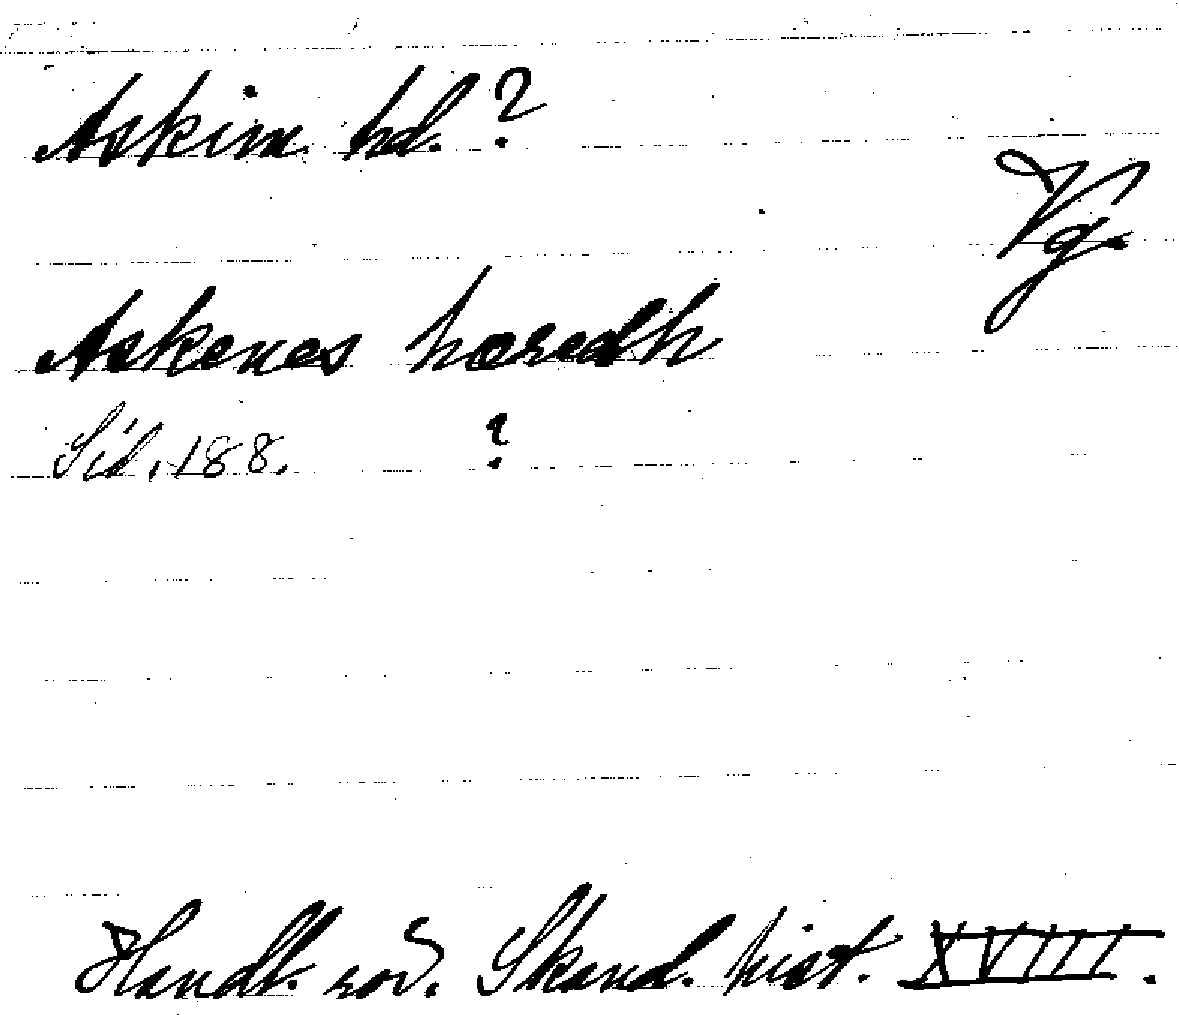 Askim hd. ?
Vg.
Askenes hæredh
Sid. 188. ?
Handl. rör. Skand. hist. XVIII.